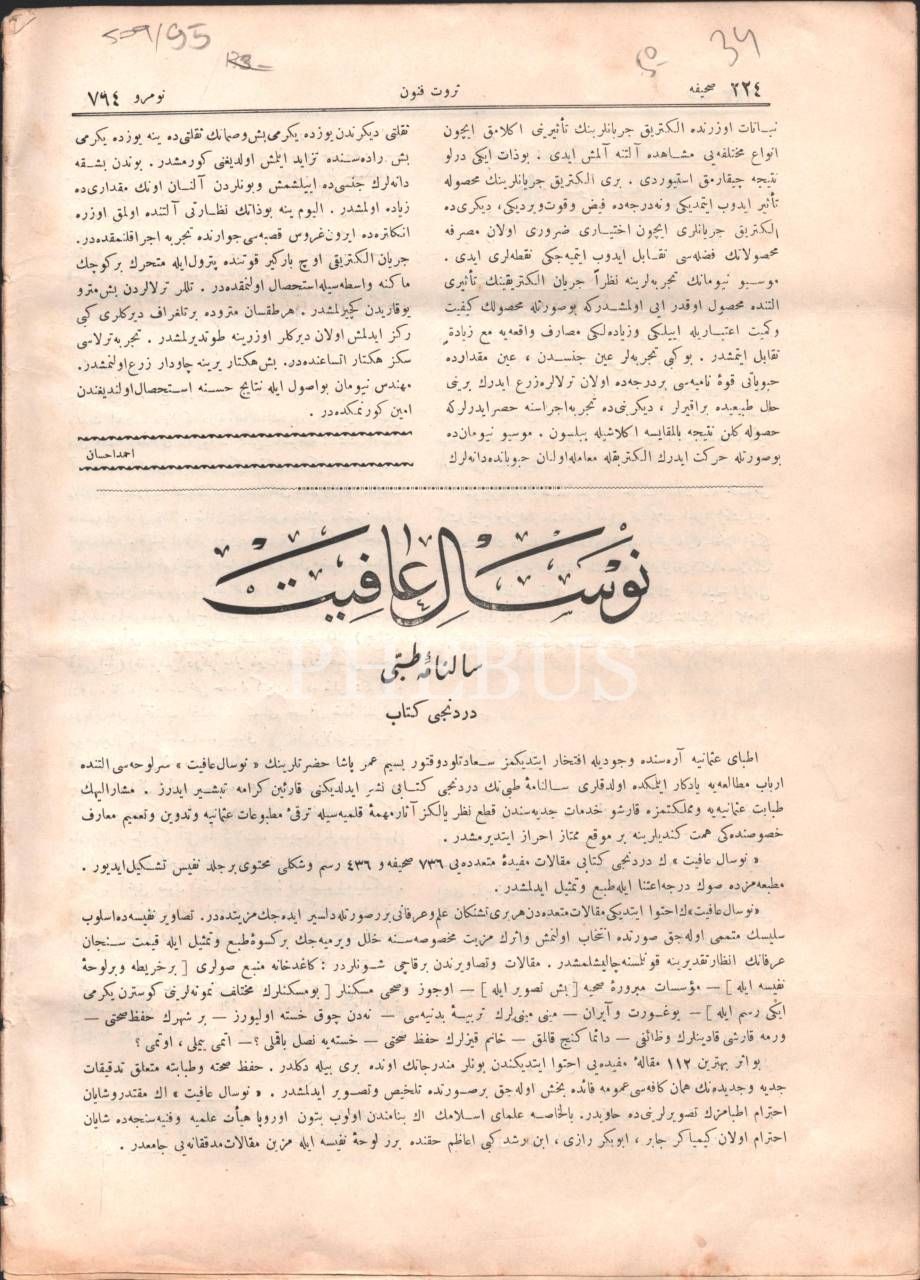 509/95
34
٢٢٤ صحیفه
ثروت فنون
نومرو ٧٩٤
نباتات اوزرنده الكتریق جریانلرینك تأثیرینی اكلامق ایچون
انواع مختلفه‌یی مشاهده آلتنه آلمش ایدی . بوذات ایكی درلو
نتیجه چیقارمق استیوردی . بری الكتریق جریانلرینك محصوله
تأثیر ایدوب ایتمدیكی ونه‌درجه‌ده فیض وقوت‌ویردیكی، دیكری‌ده
الكتریق جریانلری ایچون اختیاری ضروری اولان مصرفه
محصولاتك فضله‌سی تقابل ایدوب ایتمیه‌جكی نقطه‌لری ایدی .
موسیو نیومانك تجربه‌لرینه نظراً جریان الكتریقینك تأثیری
التنده محصول اوقدر ایی اولمشدركه بوصورتله محصولك كیفیت
وكمیت اعتباریله اییلكی وزیاده‌لكی مصارف واقعه‌یه مع زیادة
تقابل ایتمشدر . بوكبی تجربه‌لر عین جنسدن ، عین مقدارده
حبوباتی قوۀ نامیه‌سی بردرجه‌ده اولان ترلالره‌زرع ایدرك برینی
حال طبیعیده براقیرلر ، دیكرینی‌ده تجربه‌اجراسنه حصرایدرلركه
حصوله كلن نتیجه بالمقایسه اكلاشیله بیلسون . موسیو نیومان‌ده
بوصورتله حركت ایدرك الكتریقله معامله‌اولنان حبوباتده‌دانه‌لرك
ثقلتی دیكرندن یوزده یكرمی‌بش وصمانك ثقلتی‌ده ینه یوزده یكرمی
بش راده‌سنده تزاید ایتمش اولدیغنی كورمشدر . بوندن بشقه
دانه‌لرك جنسی‌ده اییلشمش وبونلردن آلنان اونك مقداری‌ده
زیاده اولمشدر . الیوم ینه بوذاتك نظارتی آلتنده اولمق اوزره
انكلتره‌ده ایرون‌غروس قصبه‌سی‌جوارنده تجربه اجراقلنمقده‌در.
جریان الكتریقی اوچ باركیر قوتنده پترول‌ایله متحرك بركوچك
ماكنه واسطه‌سیله‌استحصال اولنمقده‌در . تللر ترلالردن بش‌مترو
یوقاریدن كچیرلمشدر . هرطقسان متروده برتلغراف دیركلری كبی
ركز ایدلمش اولان دیركلر اوزرینه طوتدیرلمشدر . تجربه‌ترلاسی
سكز هكتار اتساعنده‌در. بش‌هكتار یرینه چاودار زرع‌اولنمشدر.
مهندس نیومان بواصول ایله نتایج حسنه استحصال‌اولندیغندن
امین كورنمكده‌در .
احمد احسان
نوسال عافیت
سالنامۀ طبی
دردنجی كتاب
اطبای عثمانیه آره‌سنده وجودیله افتخار ایتدیكمز سعادتلودوقتور بسیم عمر پاشا حضرتلرینك « نوسال عافیت » سرلوحه‌سی التنده
ارباب مطالعه‌یه یادكار ایلمكده اولدقلری سالنامۀ طبی‌نك دردنجی كتابی نشر ایدلدیكنی قارئین كرامه تبشیر ایدرز . مشارالیهك
طبابت عثمانیه‌یه ومملكتمزه قارشو خدمات جدیه‌سندن قطع نظر یالكز آثارمهمۀ قلمیه‌سیله ترقیٔ مطبوعات عثمانیه وتدوین وتعمیم معارف
خصوصنده‌كی همت كندیلرینه بر موقع ممتاز احراز ایتدیرمشدر .
« نوسال عافیت » ك دردنجی كتابی مقالات مفیدۀ متعدده‌یی ٧٣٦ صحیفه و ٤٣٦ رسم وشكلی محتوی برجلد نفیس تشكیل‌ایدیور .
مطبعه‌مزده صوك درجه اعتنا ایله‌طبع وتمثیل ایدلمشدر .
«نوسال‌عافیت»ك‌احتوا ایتدیكی‌مقالات‌متعدده‌دن‌هربری‌تشنكان علم‌وعرفانی‌بررصورتله‌دلسیر ایده‌جك‌مزیتده‌در. تصاویر نفیسه‌ده‌اسلوب
سلیسك متممی اوله‌جق صورتده انتخاب اولنمش واثرك مزیت مخصوصه‌سنه خلل ویرمیه‌جك بركسوۀ‌طبع وتمثیل ایله قیمت سنجان
عرفانك انظارتقدیرینه قونلسنه‌چالیشلمشدر. مقالات وتصاویرندن برقاچی شونلردر: كاغدخانه منبع صولری [ برخریطه وبرلوحۀ
نفیسه ایله ] — مؤسسات مبرورۀ صحیه [ بش تصویر ایله ] — اوجوز وصحی مسكنلر [ بومسكنلرك مختلف نمونه‌لرینی كوسترن یكرمی
ایكی رسم ایله ] — یوغورت وآیران — مینی مینی‌لرك تربیۀ بدنیه‌سی — نه‌دن چوق خسته اولیورز — بر شهرك حفظ‌صحتی —
ورمه قارشی قادینلرك وظائفی — دائما كنج قالمق — خانم قیزلرك حفظ صحتی — خسته‌یه نصل باقملی ؟ — اتمی ییملی ، اوتمی ؟
بو اثر بهترین ١١٢ مقالۀ مفیده‌یی احتوا ایتدیكندن بونلر مندرجاتك اونده بری بیله دكلدر . حفظ صحته وطبابته متعلق تدقیقات
جدیه وجدیده‌نك همان كافه‌سی عمومه فائده بخش اوله‌جق برصورتده تلخیص وتصویر ایدلمشدر . « نوسال عافیت » اك مقتدروشایان
احترام اطبامزك تصویرلرینی‌ده حاویدر. بالخاصه علمای اسلامك اك بنامندن اولوب بتون اوروپا هیأت علمیه وفنیه‌سنجه‌ده شایان
احترام اولان كیمیاكر جابر ، ابوبكر رازی ، ابن رشد كبی اعاظم حقنده برر لوحۀ نفیسه ایله مزین مقالات‌مدققانه‌یی جامعدر .
PHEBUS